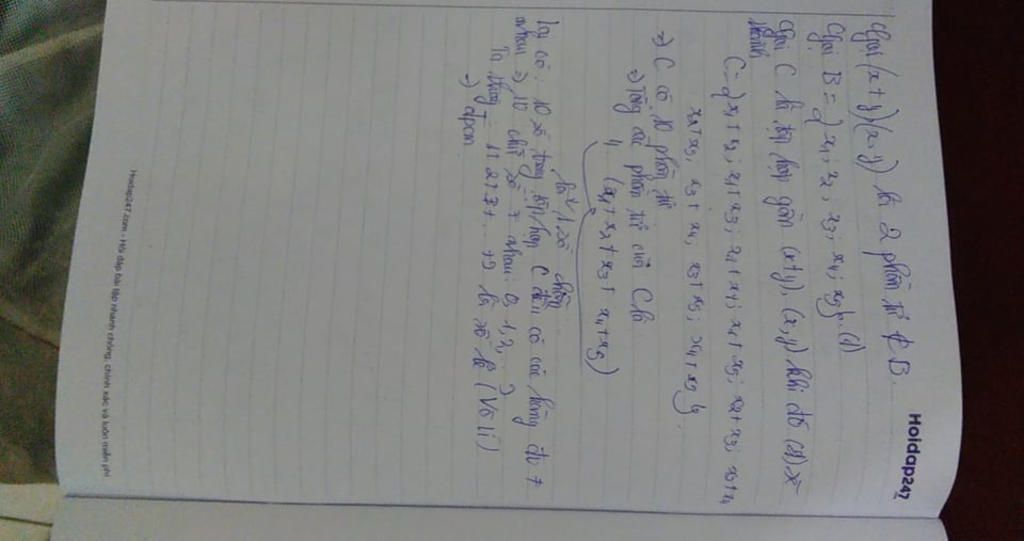 Hoidap247
Gọi (x+y)(x,y) là 2 phần tử ∉ B.
Gọi B = {x₁; x₂; x₃; x₄; x₅}. (1)
Gọi C là tập hợp gồm (x+y), (x,y) khi đó (1)
thành
C = {x₁+x₂; x₁+x₃; x₁+x₄; x₁+x₅; x₂+x₃; x₂+x₄
x₂+x₅, x₃+x₄, x₃+x₅; x₄+x₅}
=> C có 10 phần tử
=> Tổng các phần tử của C là
4 (x₁+x₂+x₃+x₄+x₅)
là 1 số chẵn
Ta có: 10 số trong tập hợp C đều có các hàng đv ≠
nhau => 10 chữ số ≠ nhau: 0, 1, 2, .. 9
Ta thấy = 1+2+3+ .. +9 là số lẻ (Vô lí)
=> đpcm
Hoidap247.com - Hỏi đáp bài tập nhanh chóng, chính xác và luôn miễn phí